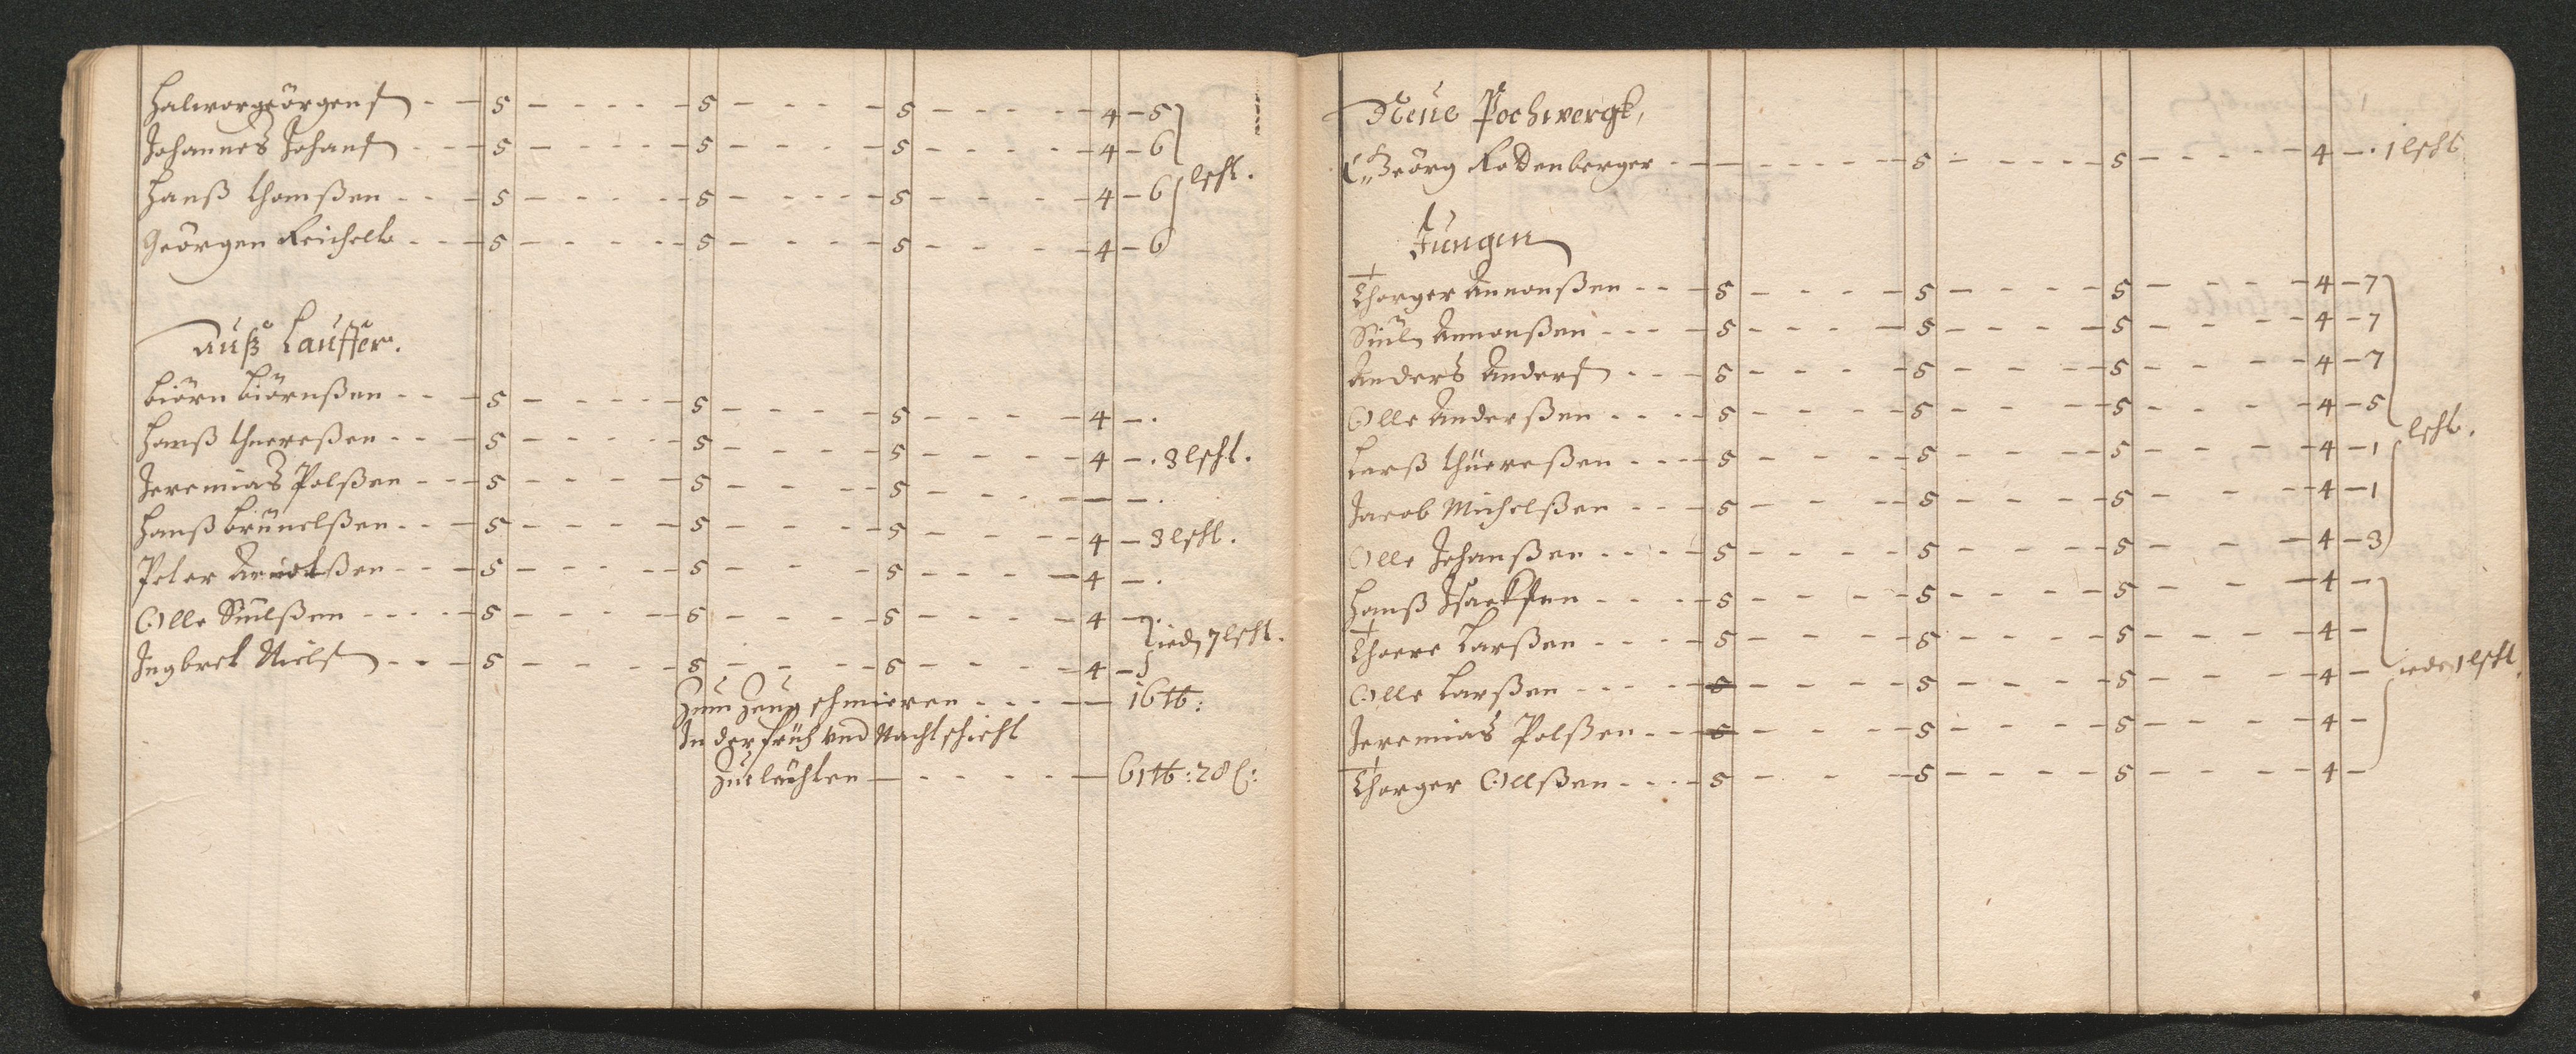 Halvor Georgens - - 5 - - - - 5 - - - 5 - - - - 4 - 5
Johannes Johans - - - 5 - - - - 5 - - - 5 - - - - 4 - 6
Hanß Thomßen - - - 5 - - - - 5 - - - - 5 - - - 4 - 6 lscht.
Geörgen Reichelt - - - 5 - - - - 5 - - - 5 - - - 4 - 6
Auß Lauffer.
Biörn Biörnßen - - - 5 - - - - 5 - - - 5 - - - 4 - .
Hanß - - - 5 - - - - 5 - - - 5 - - - 4 - . 3 lscht.
Jeremias Polßen - - - 5 - - - - 5 - - - 5 - - - - - .
Hanß Brünelßen - - - 5 - - - - 5 - - - 5 - - - 4 - 3 lscht.
Peter - - - 5 - - - - 5 - - - 5 - - - 4 - .
Olle Siulßen - - - - 5 - - - - 5 - - - 5 - - - 4 - .
Ingbret Niels - - - 5 - - - - 5 - - - 5 - - - 4 - ied 7 lscht.
Zum Zeug schmieren - - - - 16 tb:
In der früh und Nachtschicht
Zue leuchten - - - - - 61 tb: 28 l:
Neue Pochwergk,
Geörg Rodenberger - - - - - - 5 - - - - 5 - - - - 4 - . 1 lscht
Jungen
Thorger Amonßen - - - 5 - - - - 5 - - - - 5 - - - - 4 - 7
Siul Amonßen - - - - 5 - - - - 5 - - - - 5 - - - - 4 - 7
Anders Anders - - - 5 - - - - 5 - - - - 5 - - - - 4 - 7
Olle Anderßen - - - - 5 - - - - 5 - - - - 5 - - - - 4 - 5
lscht.
Larß Thüereßen - - - - 5 - - - - 5 - - - - 5 - - - - 4 - 1
Jacob Michelßen - - - 5 - - - - 5 - - - - 5 - - - - 4 - 1
Olle Johanßen - - - - 5 - - - - 5 - - - - 5 - - - - 4 - 3
Hanß Isacksen - - - - 5 - - - - 5 - - - - 5 - - - - 4 -
Thoere Larßen - - - - 5 - - - - 5 - - - - 5 - - - - 4 -
Olle Larßen - - - - 5 - - - - 5 - - - - 5 - - - - 4 - iede 1 lscht.
Jeremias Polßen - - - 5 - - - - 5 - - - - 5 - - - - 4 -
Thorger Ollßen - - - - 5 - - - - 5 - - - - 5 - - - - 4 -